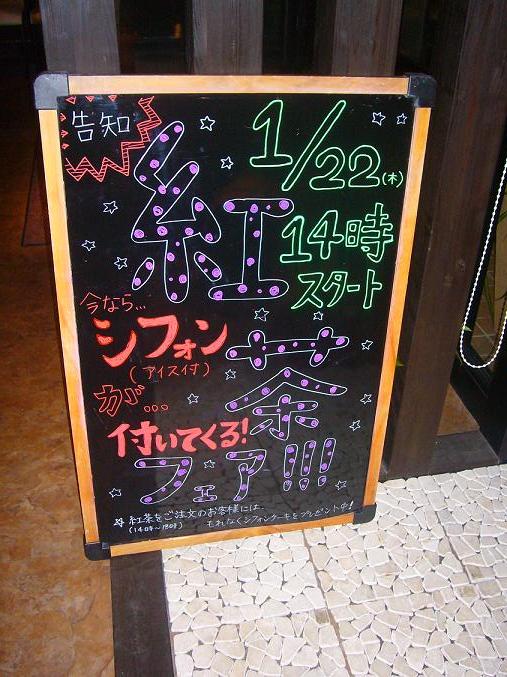 告知
1/22(木)
14時
スタート
紅茶
フェア!!!
今なら...
シフォン
(アイス付)
が...
付いてくる!
☆ 紅茶をご注文のお客様には
(14時~18時) もれなくシフォンケーキをプレゼント中!